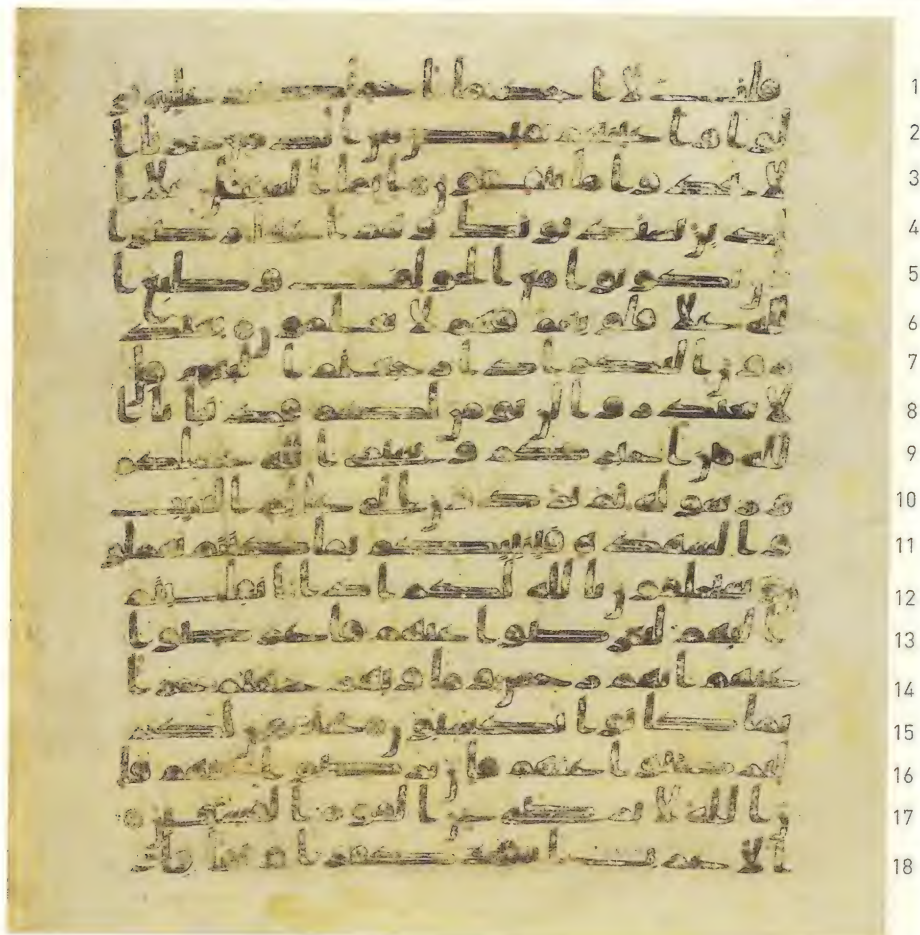 1 قلت لا اجد ما احملكم عليه تو
2 لوا واعينهم تفيض من الدمع حزنا ا
3 لا يجدوا ما ينفقون انما السبيل على ا
4 لذين يستذنونك وهم اغنيا رضوا
5 بان يكونوا مع الخوالف وطبع ا
6 لله على قلوبهم فهم لا يعلمون يعتذ
7 رون اليكم اذا رجعتم اليهم قل
8 لا تعتذروا لن نومن لكم قد نبانا ا
9 لله من اخباركم وسيرى الله عملكم
10 ورسوله ثم تردون الى علم الغيب
11 والشهدة فينبيكم بما كنتم تعملو
12 ن سيحلفون بالله لكم اذا انقلبتم
13 اليهم لتعرضوا عنهم فاعرضوا
14 عنهم انهم رجس وماويهم جهنم جزا
15 بما كانوا يكسبون يحلفون لكم
16 لترضوا عنهم فان ترضوا عنهم فا
17 ن الله لا يرضى عن القوم الفسقين
18 الاعراب اشد كفرا ونفاقا